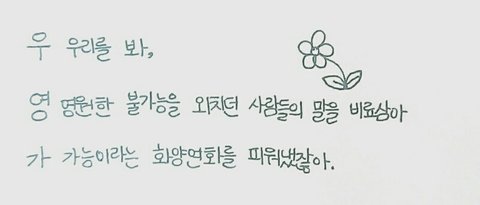 우 우리를 봐,
영 영원한 불가능을 외치던 사람들의 말을 비료삼아
가 가능이라는 화양연화를 피워냈잖아.